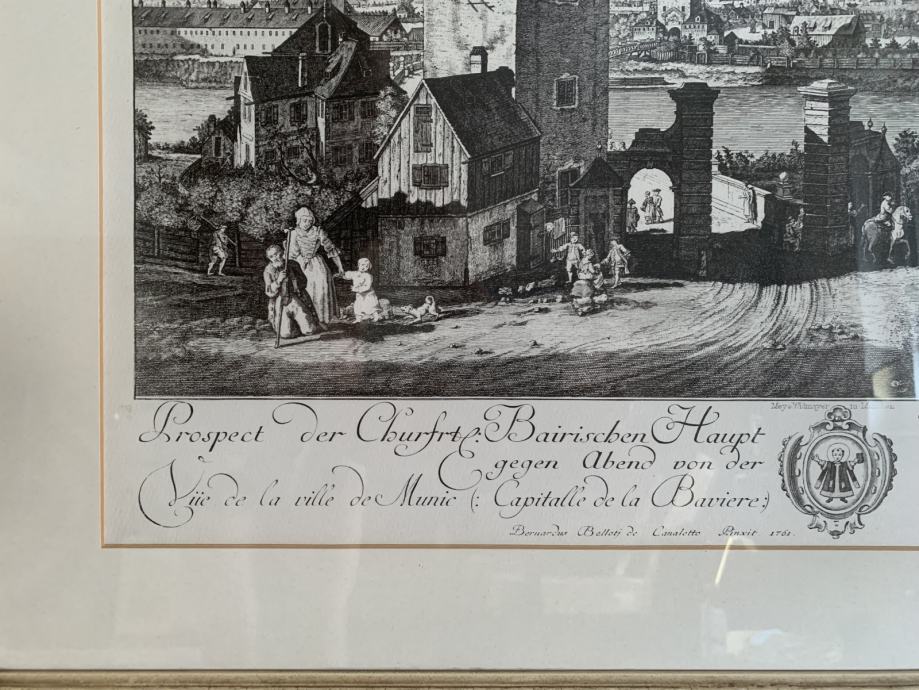 Mey & Widmayer in München
Prospect der Churfrtl: Bairischen Haupt
gegen Abend von der
Vüe de la ville de Munic (: Capitalle de la Baviere:)
Bernardus Bellotj de Canaletto Pinxit 1761.